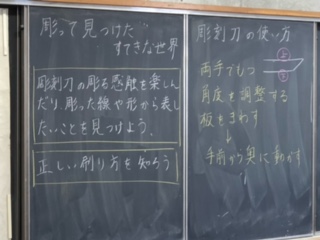 彫って見つけた
すてきな世界
彫刻刀の彫る感触を楽しん
だり、彫った線や形から表し
たいことを見つけよう。
正しい刷り方を知ろう
彫刻刀の使い方
両手でもつ
角度を調整する
板をまわす
↓
手前から奥に動かす